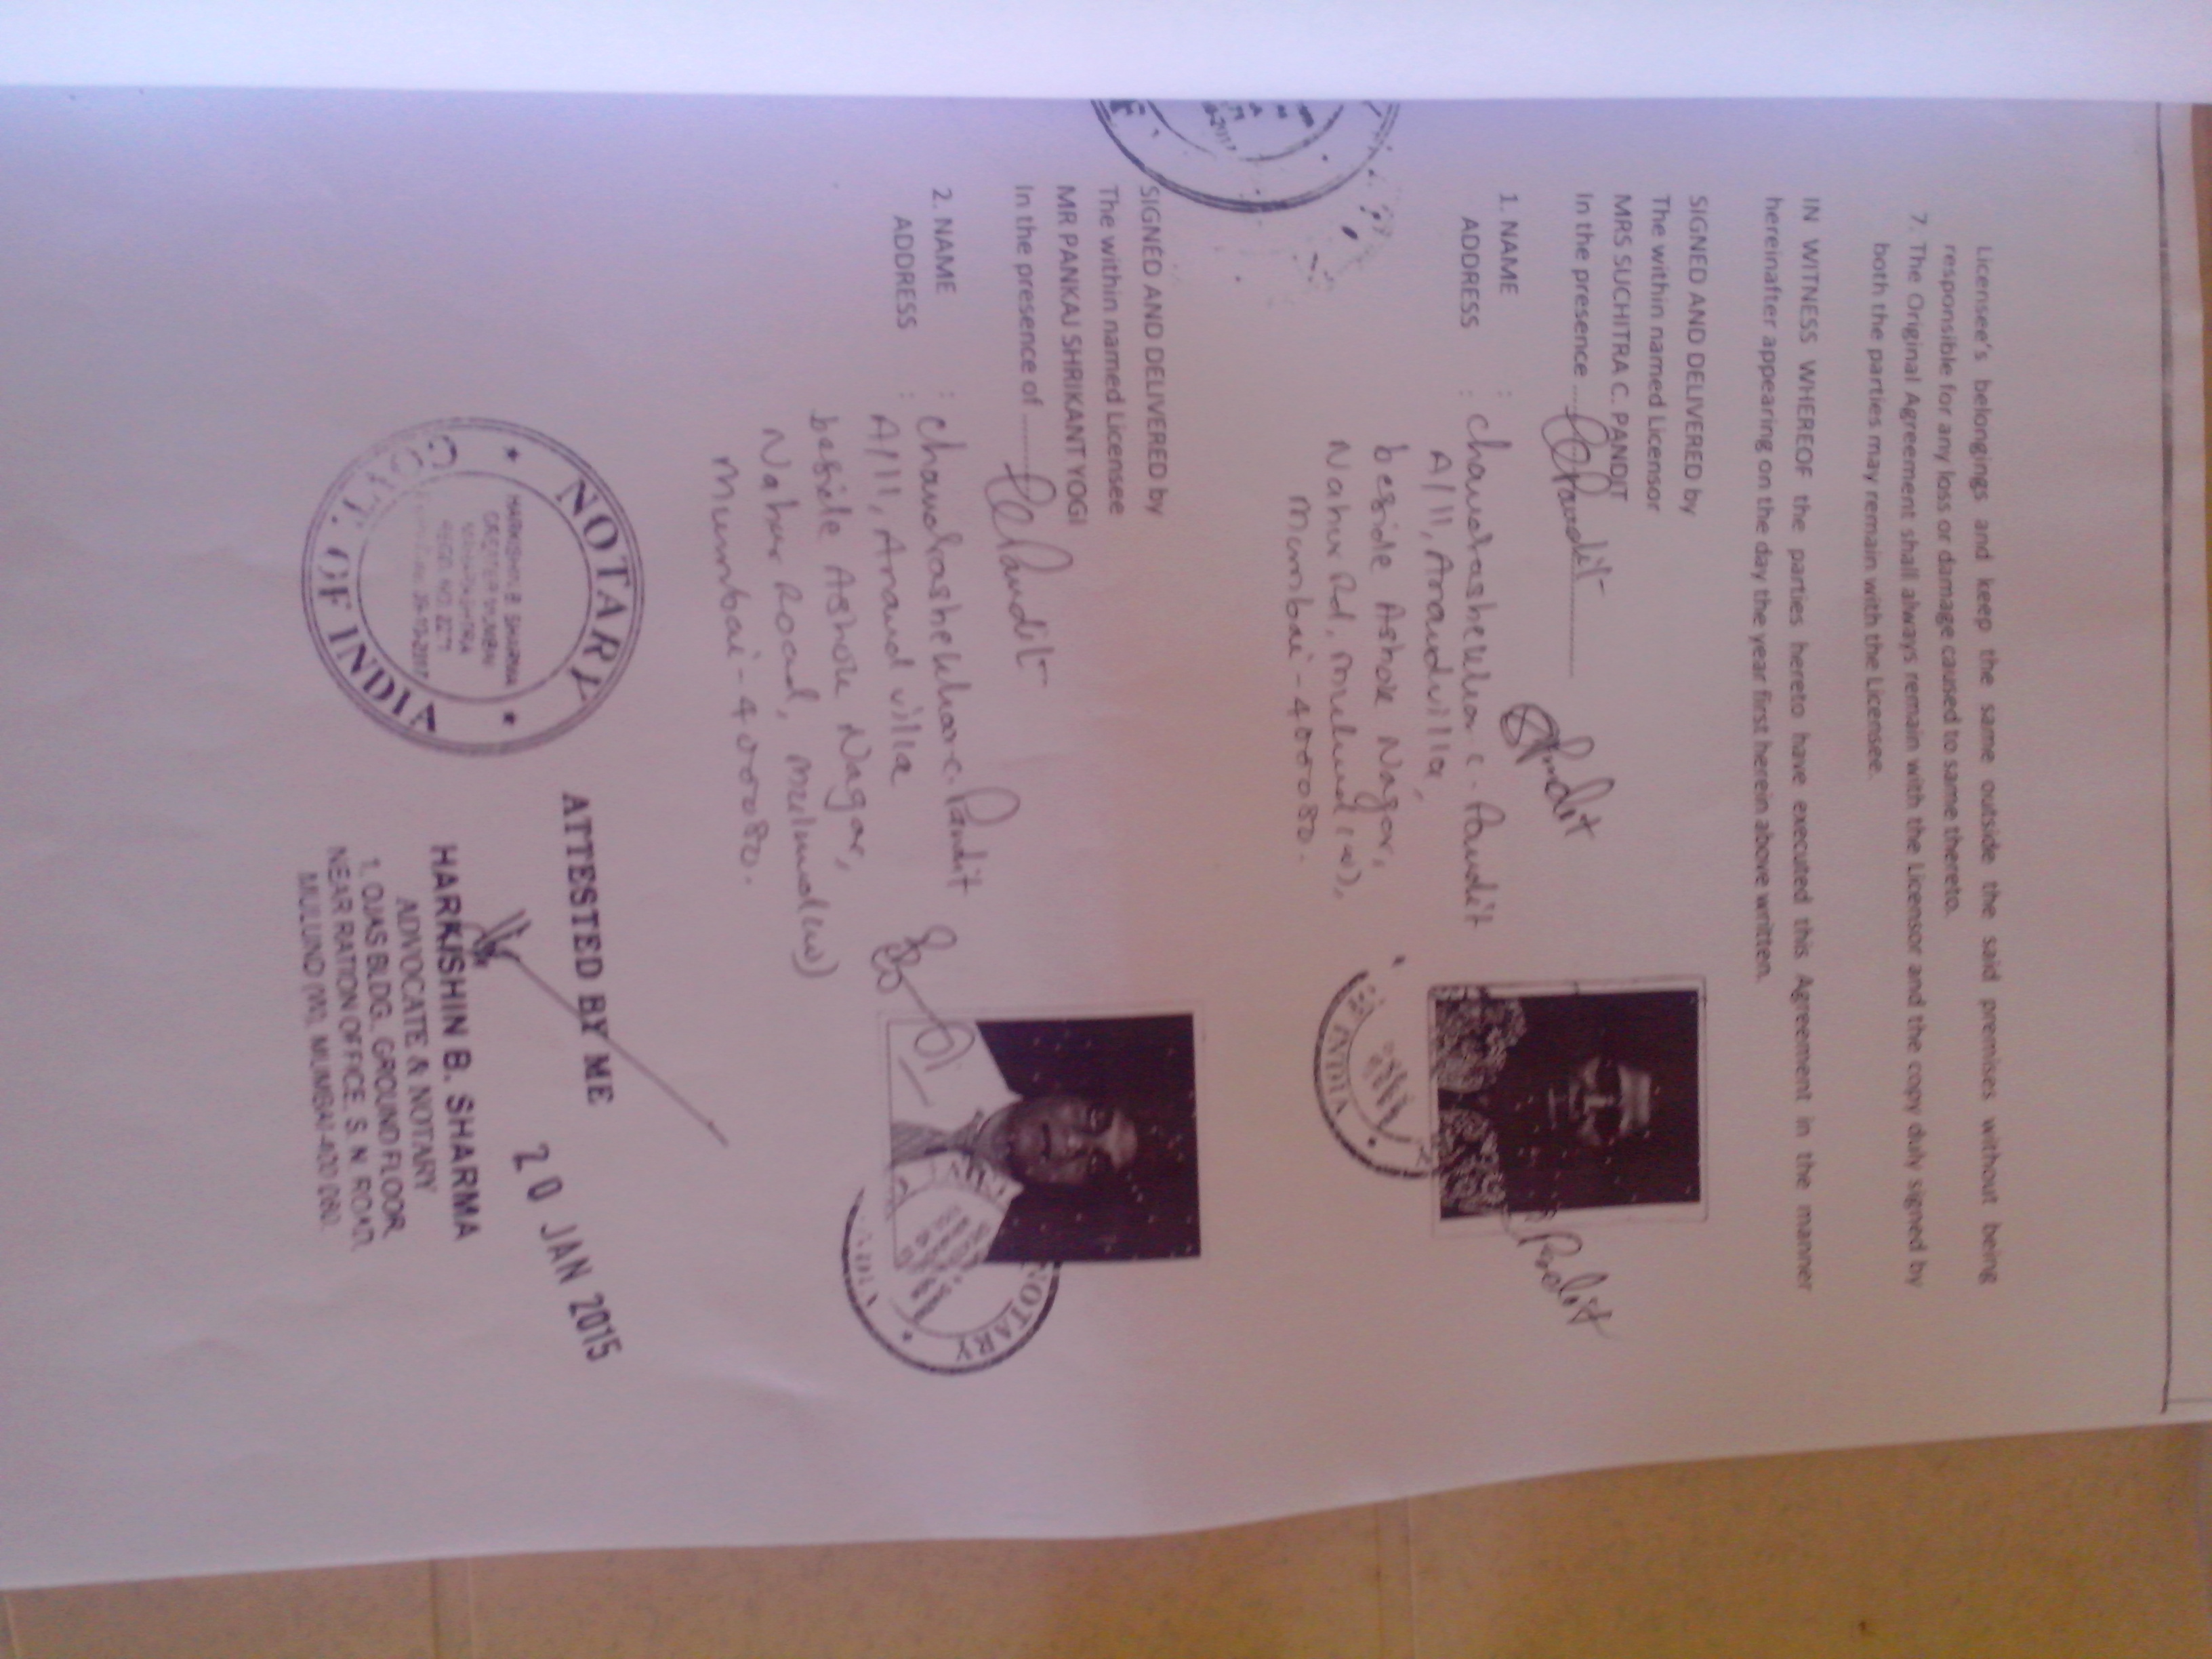 Licensee's belongings and keep the same outside the said premises without being
responsible for any loss or damage caused to same thereto.
7. The Original Agreement shall always remain with the Licensor and the copy duly signed by
both the parties may remain with the Licensee.
IN WITNESS WHEREOF the parties hereto have executed this Agreement in the manner
hereinafter appearing on the day the year first herein above written.
SIGNED AND DELIVERED by
The within named Licensor
MRS SUCHITRA C. PANDIT
In the presence ....
1. NAME : Chandrashekhar C. Pandit
ADDRESS : A/11, Anandvilla,
beside Ashok Nagar,
Nahur Rd, Mulund (W),
Mumbai - 400080.
SIGNED AND DELIVERED by
The within named Licensee
MR PANKAJ SHRIKANT YOGI
In the presence of ........
2. NAME : Chandrashekhar C. Pandit
ADDRESS : A/11, Anand villa
beside Ashok Nagar,
Nahur Road, Mulund (W)
Mumbai - 400080.
NOTARY
HARKISHIN B. SHARMA
GREATER MUMBAI
MAHARASHTRA
OF INDIA
NOTARY
INDIA
ATTESTED BY ME
20 JAN 2015
HARKISHIN B. SHARMA
ADVOCATE & NOTARY
1, OJAS BLDG., GROUND FLOOR,
NEAR RATION OFFICE, S. N. ROAD,
MULUND (W), MUMBAI-400 080.